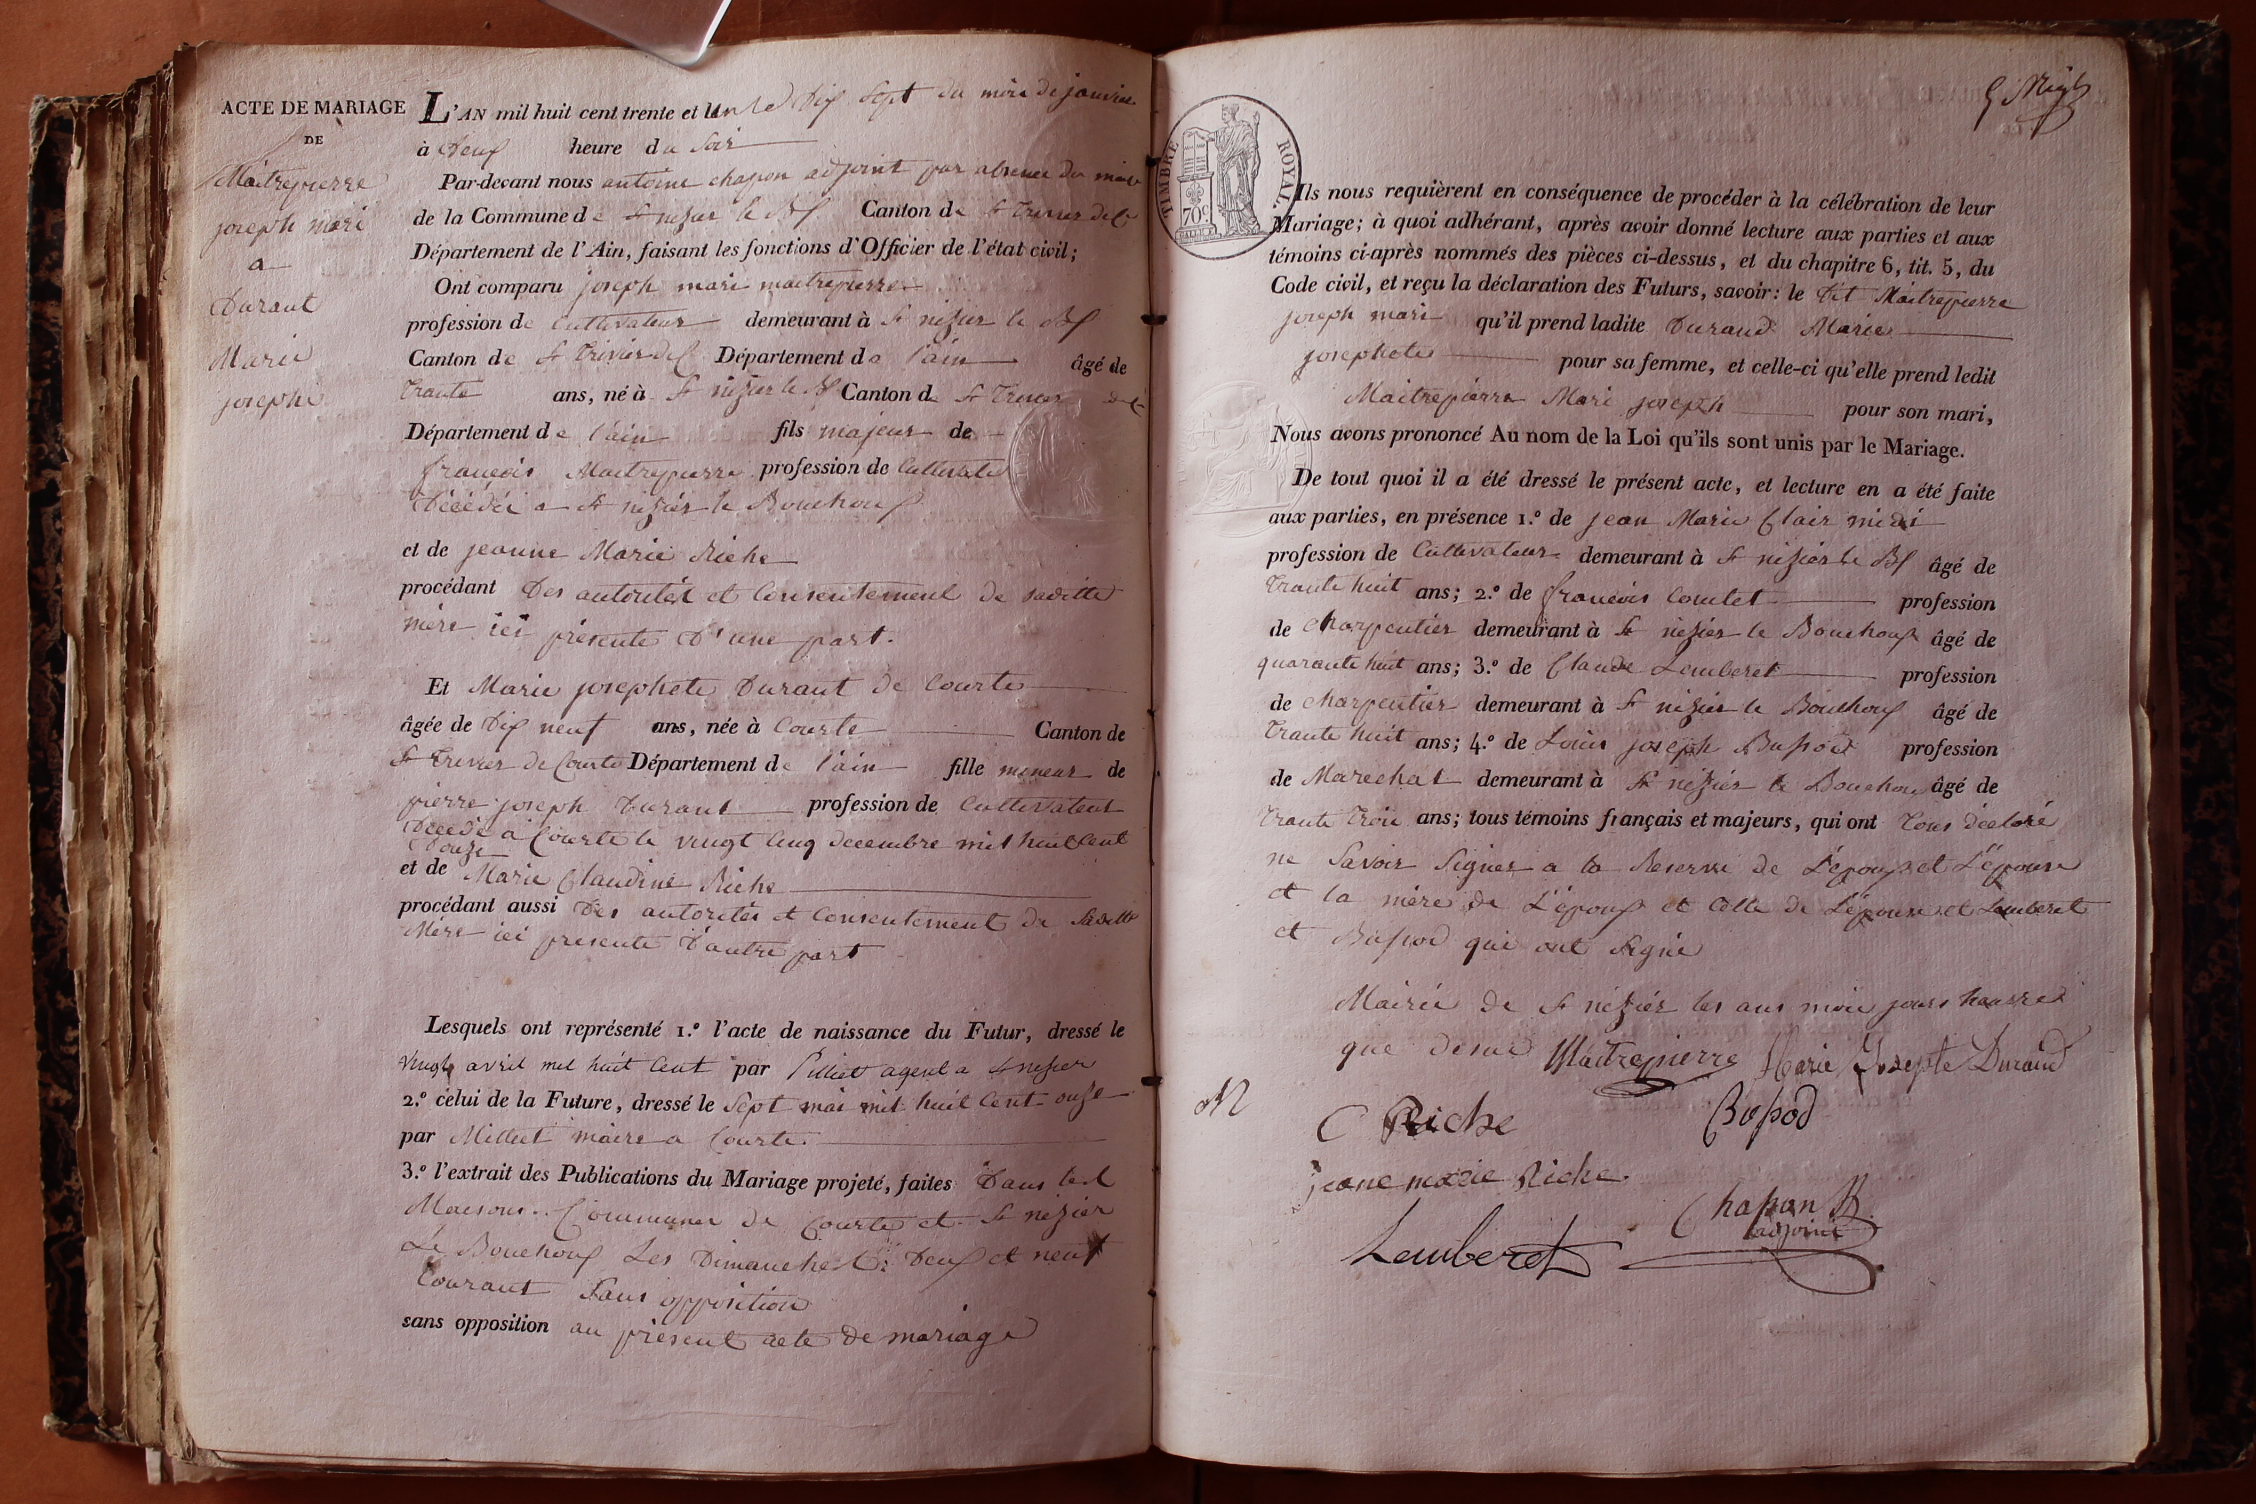 ACTE DE MARIAGE
DE
Maitrepierre
joseph mari
a
Durant
Marie
josephe
L'AN mil huit cent trente et un le dix sept du mois de janvier
à deux heure du soir
Par-devant nous antoine chapon adjoint par absence du maire
de la Commune de St nezier le Bx Canton de St Trivier de C
Département de l'Ain, faisant les fonctions d'Officier de l'état civil;
Ont comparu joseph mari maitrepierre
profession de Cultivateur demeurant à St nizier le Bx
Canton de St Trivier de C Département de l'ain âgé de
trante ans, né à St nizier le Bx Canton de St Trivier de C
Département de l'ain fils majeur de
françois Maitrepierre profession de Cultivateur
décédé a St nizier le Bouchoux
et de jeanne Marie Riche
procédant des autorités et Consentement de saditte
mère ici présente d'une part.
Et Marie josephete Durant de Courte
âgée de dix neuf ans, née à Courte Canton de
St Trivier de Courte Département de l'ain fille mineur de
pierre joseph Durant profession de Cultivateur
décédé a Courte le vingt cinq decembre mil huit Cent
douze
et de Marie Claudine Riche
procédant aussi des autorités et Consentement de saditte
Mère ici presente d'autre part
Lesquels ont représenté 1.º l'acte de naissance du Futur, dressé le
vingt avril mil huit Cent par Pilliet agent a St nizier
2.º celui de la Future, dressé le Sept mai mil huit Cent onze
par Milliet maire a Courte
3.º l'extrait des Publications du Mariage projeté, faites dans les
Maisons Communes de Courte et St nezier
Le Bouchoux Les Dimanches deux et neuf
Courant Sans opposition
sans opposition au présent acte de mariage
TIMBRE ROYAL.
70c.
Ils nous requièrent en conséquence de procéder à la célébration de leur
Mariage; à quoi adhérant, après avoir donné lecture aux parties et aux
témoins ci-après nommés des pièces ci-dessus, et du chapitre 6, tit. 5, du
Code civil, et reçu la déclaration des Futurs, savoir: le dit Maitrepierre
joseph mari qu'il prend ladite Durand Marie
josephete pour sa femme, et celle-ci qu'elle prend ledit
Maitrepierre Mari joseph pour son mari,
Nous avons prononcé Au nom de la Loi qu'ils sont unis par le Mariage.
De tout quoi il a été dressé le présent acte, et lecture en a été faite
aux parties, en présence 1.º de jean Marie Clair midi
profession de Cultivateur demeurant à St nizier le Bx âgé de
trante huit ans; 2.º de françois Comtet profession
de charpentier demeurant à St nezier le Bouchoux âgé de
quarante huit ans; 3.º de Claude Lemberet profession
de charpentier demeurant à St nizier le Bouchoux âgé de
trante huit ans; 4.º de Louis joseph Bussod profession
de Marechal demeurant à St nizier le Bouchoux âgé de
trante trois ans; tous témoins français et majeurs, qui ont tous déclaré
ne Savoir Signer a la Reserve de L'époux et L'épouse
et la mère de L'époux et Celle de L'épouse et Lemberet
et Bussod qui ont Signé
Mairie de St nézier les ans mois jours heures
que dessus Maitrepierre Marie Josepte Durand
C Riche Bussod
jeane marie Riche.
Chapon
adjoint
Lemberet